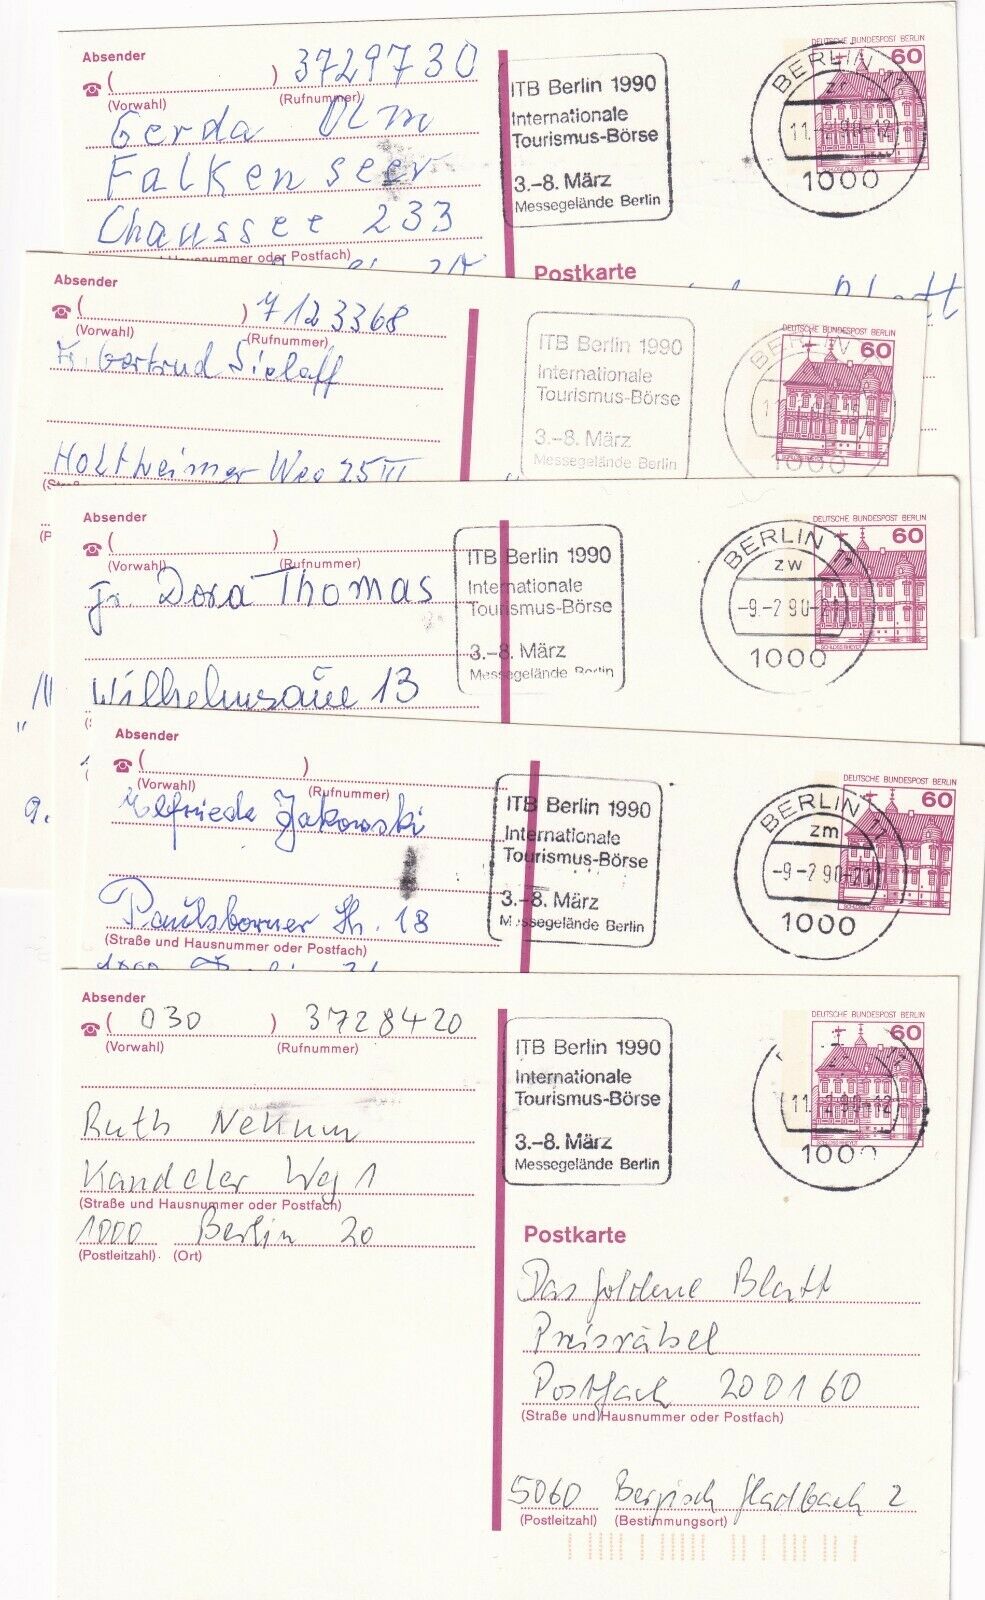 Absender
( ) 3729730
(Vorwahl) (Rufnummer)
Gerda Olm
Falkenseer
Chaussee 233
Hausnummer oder Postfach)
ITB Berlin 1990
Internationale
Tourismus-Börse
3.–8. März
Messegelände Berlin
DEUTSCHE BUNDESPOST BERLIN
60
BERLIN 11
11.-2.90-12
1000
SCHLOSS RHEYDT
Postkarte
Blatt
Absender
( ) 7123368
(Vorwahl) (Rufnummer)
Fr. Gertrud Sielaff
Holtheimer Weg 25 III
ITB Berlin 1990
Internationale
Tourismus-Börse
3.–8. März
Messegelände Berlin
DEUTSCHE BUNDESPOST BERLIN
60
BERLIN
1000
Absender
( )
(Vorwahl) (Rufnummer)
Fr. Dora Thomas
Wilhelmsaue 13
ITB Berlin 1990
Internationale
Tourismus-Börse
3.–8. März
Messegelände Berlin
DEUTSCHE BUNDESPOST BERLIN
60
BERLIN 11
zw
-9.-2.90-21
1000
SCHLOSS RHEYDT
Absender
( )
(Vorwahl) (Rufnummer)
Elfriede Jakowski
Paulsborner Str. 18
(Straße und Hausnummer oder Postfach)
ITB Berlin 1990
Internationale
Tourismus-Börse
3.–8. März
Messegelände Berlin
DEUTSCHE BUNDESPOST BERLIN
60
BERLIN 11
zm
-9.-2.90-21
1000
SCHLOSS RHEYDT
Absender
( 030 ) 3728420
(Vorwahl) (Rufnummer)
Ruth Nekum
Kandeler Weg 1
(Straße und Hausnummer oder Postfach)
1000 Berlin 20
(Postleitzahl) (Ort)
ITB Berlin 1990
Internationale
Tourismus-Börse
3.–8. März
Messegelände Berlin
DEUTSCHE BUNDESPOST BERLIN
60
11.-2.90-12
1000
SCHLOSS RHEYDT
Postkarte
Das goldene Blatt
Preisrätsel
Postfach 200160
(Straße und Hausnummer oder Postfach)
5060 Bergisch Gladbach 2
(Postleitzahl) (Bestimmungsort)